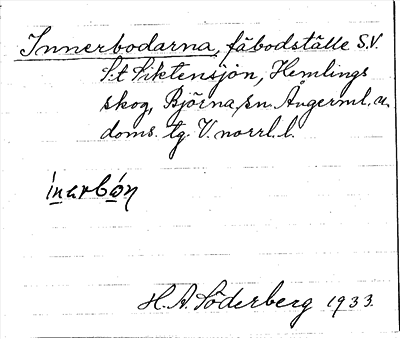 Innerbodarna, fäbodställe S.V.
St Siktensjön, Hemlings
skog, Björna sn. Ångerml. a.
doms. tg. V. norrl. l.
inarbón
H. A. Söderberg 1933.